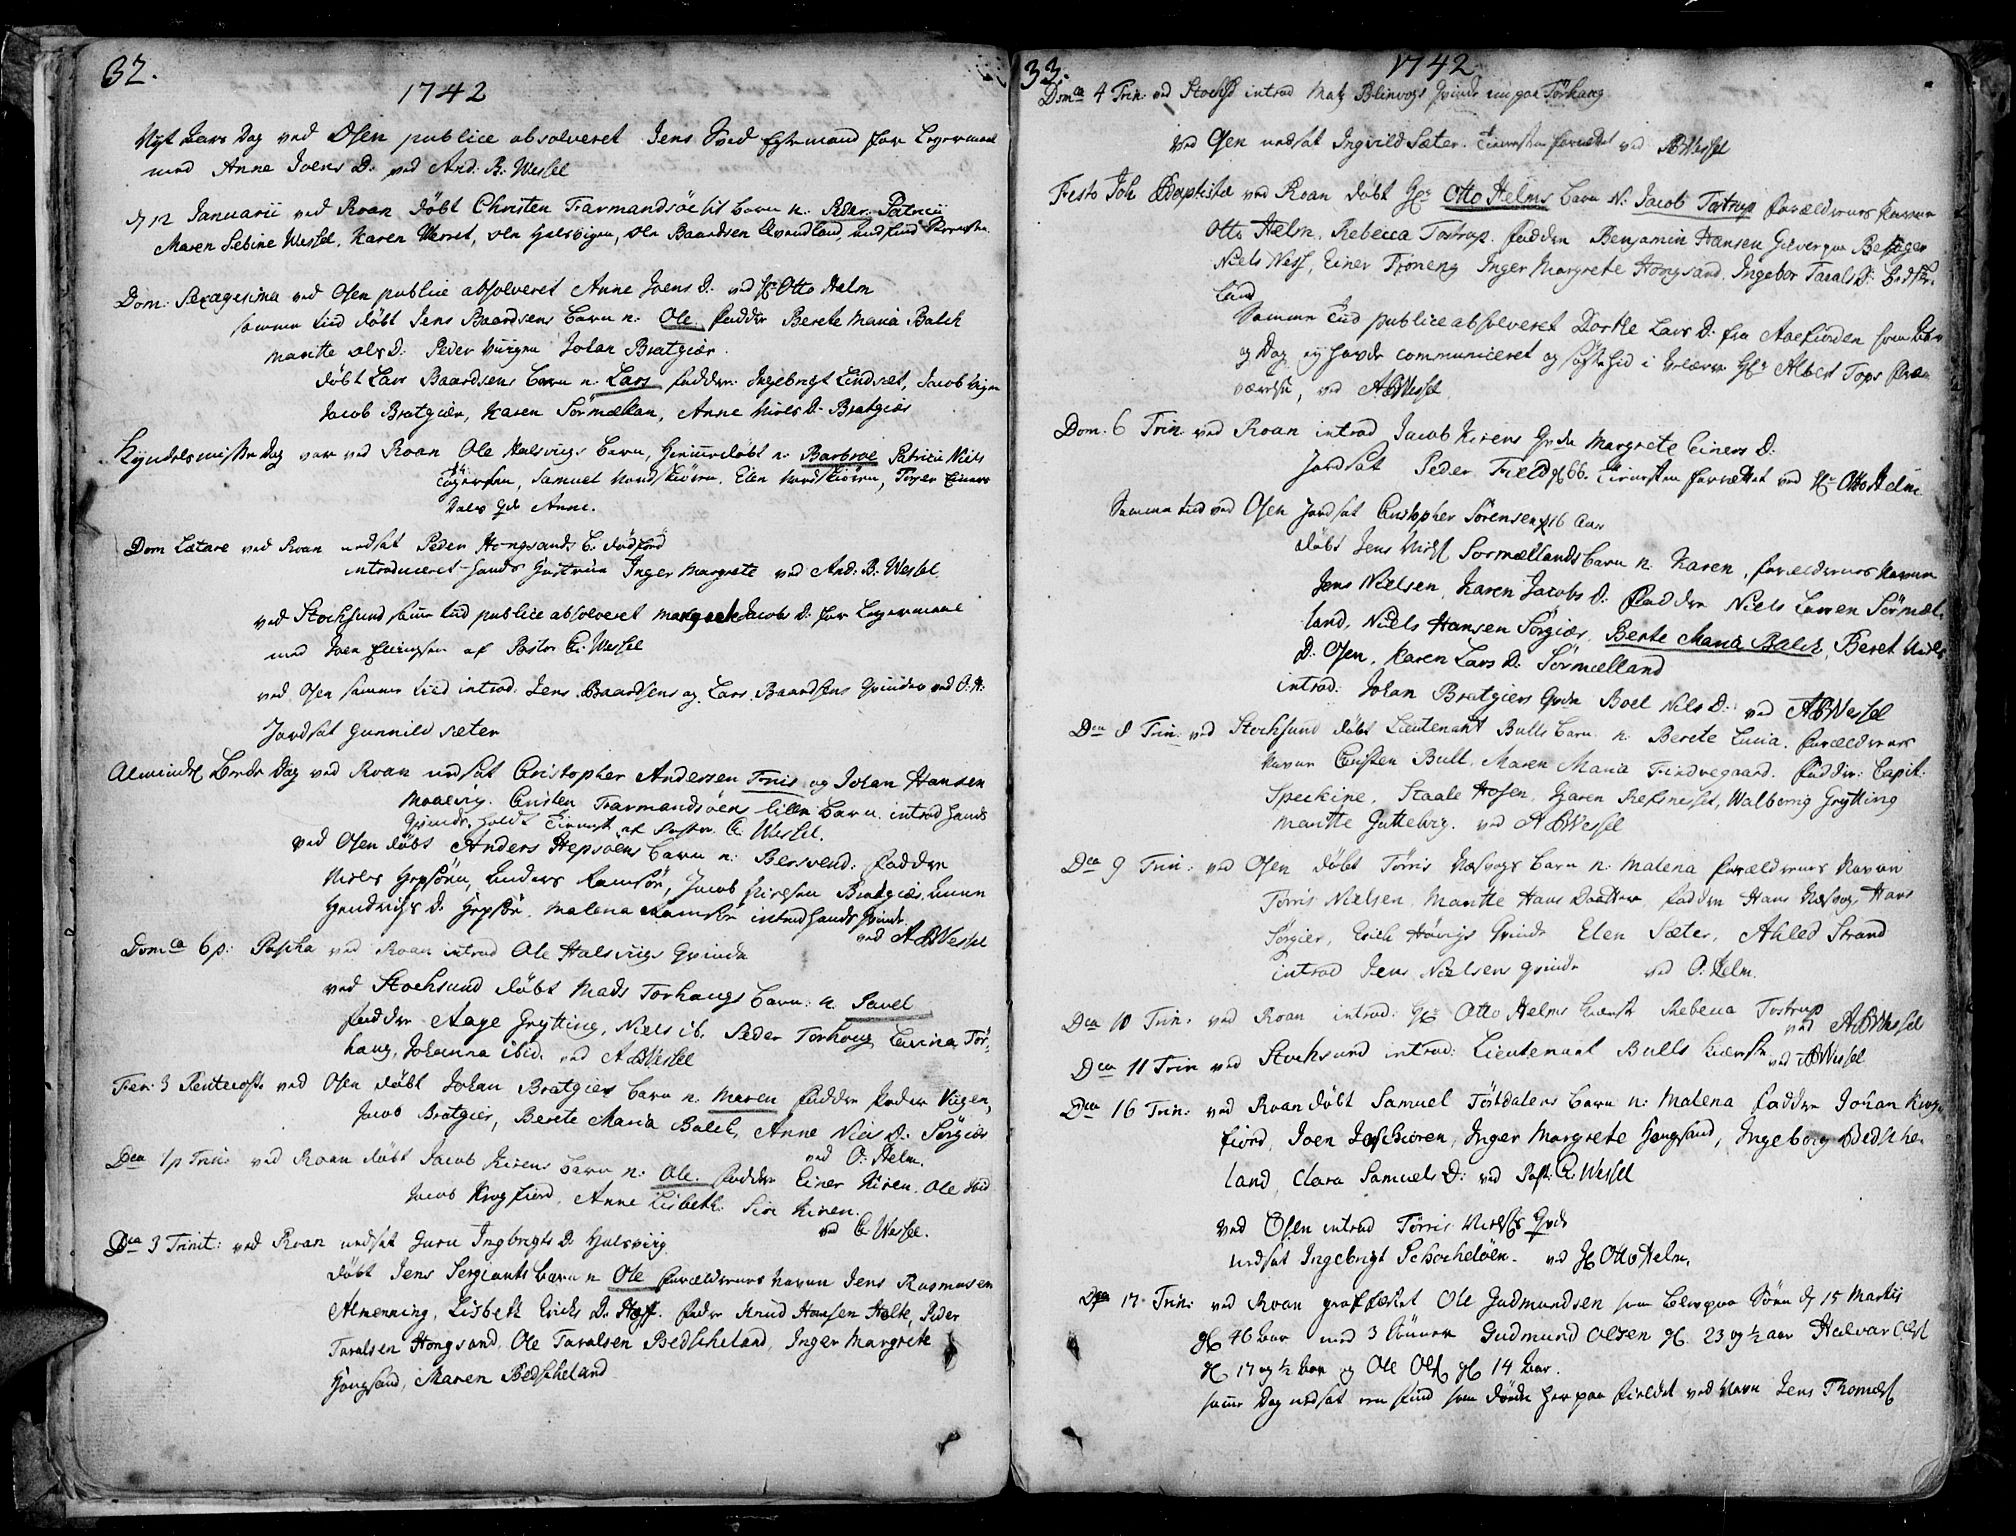 32.
1742
Nyt Aars Dag ved Osen publice absolveret Jens Egtemand for Legermaal
med Anne Joens D. ved And. B. Wessel
d 12 Januarii ved Roan døbt Christen Tarmandsöe barn n. Peder. Patrini
Maren Sebine Wessel, Karen Ole Halsvigen, Ole Baardsen Qvandland,
Dom: Sexagesima ved Osen publice absolveret Anne Joens D. ved Hr Otto Helm
samme tiid døbt Jens Baardsens barn n. Ole. faddre Berete Maria Balch
Maritte Ols D. Peder Viigen Johan Bratgier.
døbt Lars Baardsens barn n. Lars faddre. Ingebrigt Lindset, Jacob Vigen
Jacob Bratgier, Karen Sörmelan, Anne Niels D. Bratgier
Kyndelmisse Dag var ved Roan Ole Halsvigs barn, hiemmedøbt n. Barbroe Patrini Niels
Samuel Nordskiören, Elen Nordskiören, Torger Einers
Anne.
Dom Lætare ved Roan nedsat Peder Hongsands b. dödföd
introduceret hands Hustrue Inger Margrete ved And: B. Wessel
ved Stocksund samme tiid publice absolveret Margrete Jacobs D. for Legermaal
med Joen Ellingsen af Pastor C. Wessel
ved Osen samme tiid introd. Jens Baardsens og Lars Baardsens Qvinder ved O. H.
Jordsat Gunnild Sæter
Almindel Beede Dag ved Roan nedsat Christopher Andersen Friis og Johan Hansen
Christen Tarmandsöens lille barn. introd hands
Qvinde. holdt af Pastor C. Wessel.
ved Osen døbt Anders Hepsöens barn n: Bersvend. faddre
Niels Hepsöen, Anders Ramsöe, Jacob Bratgier,
Hendrichs D. Hepsöe. Malena Ramsöe introd hands Qvinde
ved ABWessel
Domca 6 p: Pascha ved Roan introd Ole Halsviigs Qvinde
ved Stocksund døbt Mads Torhaugs barn: n. Pavel
faddre Aage Grytting, Niels ib. Peder Torhoug Lavina Tör-
haug, Johanna ibid. ved ABWessel
Fer: 3 Pentecoste ved Osen døbt Johan Bratgiers barn n. Maren faddre Peder Viigen,
Jacob Bratgier, Berete Maria Balch, Anne Niels D. Sörgier
ved O. Helm.
Dca 1 p Trin: ved Roan døbt Jacob Kirens barn n: Ole. faddre Einer Kiren. Ole ibid
Jacob Krogfiord, Anne Lisbeth. Siri Kiren.
ved C. Wessel.
Dca 3 Trinit: ved Roan nedsat Guru Ingbrigts D. Halsviig
døbt Jens Sergiants barn n Ole forældrenes navne Jens Rasmusen
Almenning, Lisbeth Erichs D. Hoff. faddre Knud Hansen Holte, Peder
Taralsen Hongsand, Ole Taralsen Bedscheland, Inger Margrete
Hongsand, Maren Bedscheland
33.
1742
Domca 4 Trin: ved Stochs introd Matz Blinvogs Qvinde nu paa Törhaug
ved Osen nedsat Ingvild Sæter. Tienesten forrettet ved ABWessel
Festo Joh Baptistæ ved Roan døbt Hr Otto Helms barn N: Jacob Tostrup forældrenes navne
Otto Helm, Rebecca Tostrup. faddre Benjamin Hansen
Niels Ness, Einer Inger Margrete Hongsand, Ingebor Tarals D. Bedsche-
land
Samme tiid publice absolveret Dorthe Lars D. fra Aaefiorden som
og Dag ej havde communiceret og Hr Albert Tops
værelse, ved ABWessel
Dom. 6 Trin. ved Roan introd Jacob Kirens Qvde Margrete Einers D.
Jordsat Peder Field gl 66. Tienesten forrettet ved Hr Otto Helm
Samme tiid ved Osen jordsat Christopher Sörensen gl 16 Aar
døbt Jens Niels Sörmellands barn n. Karen, forældrenes navne
Jens Nielsen, Karen Jacobs D. faddre Niels Larsen Sörmel-
land, Niels Hansen Sörgier, Berte Maria Balch, Beret Niels
D. Osen, Karen Lars D. Sörmelland
introd: Johan Bratgiers Qvde Boel Nils D. ved ABWessel
Dca 8 Trin: ved Stocksund døbt Lieutenant Bulls barn n. Berete Lucia. forældrenes
navne Christen Bull, Maren Maria Findnegaard. faddre: Capit:
Speckine, Staale Hofen, Karen Refsnesset, Walborig Grytting
Maritte Gutteborg. ved ABWessel
Dca 9 Trin: ved Osen døbt Törris Næsvogs barn n: Malena forældrenes navne
Törris Nielsen, Maritte Hans Daatter, faddre Hans Næsvog, Hans
Sörgier, Erich Hövigs Qvinde Elen Sæter, Ahled Strand
introd Jens Nielsens qvinde ved O: Helm.
Dca 10 Trin: ved Roan introd: Hr Otto Helms kiærste Rebecca Tostrup
ved ABWessel
Dca 11 Trin ved Stocksund introd: Lieutenant Bulls kiærste ved ABWessel
Dca 16 Trin: ved Roan døbt Samuel Töstdalens barn n: Malena faddre Johan Krog-
fiord, Joen Inger Margrete Hongsand, Ingeborg Bedsche-
land, Clara Samuels D: ved Past. C. Wessel
ved Osen introd Törris Niels Qvde
nedsat Ingebrigt Schochelöen. ved Hr Otto Helm.
Dca 17 Trin: ved Roan graffæstet Ole Gudmundsen som blev paa Söen d 15 Martij
gl 46 Aar med 3 Sönner Gudmund Olsen gl. 23 og ½ aar Halvar Ols
gl 17 og ½ Aar og Ole Ols gl 14 Aar.
samme Dag nedsat en som døde her paa fieldet ved Navn Jens Thomes